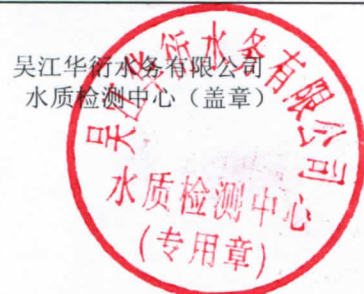 吴江华衍水务有限公司
水质检测中心（盖章）
吴江华衍水务有限公司
水质检测中心
(专用章)